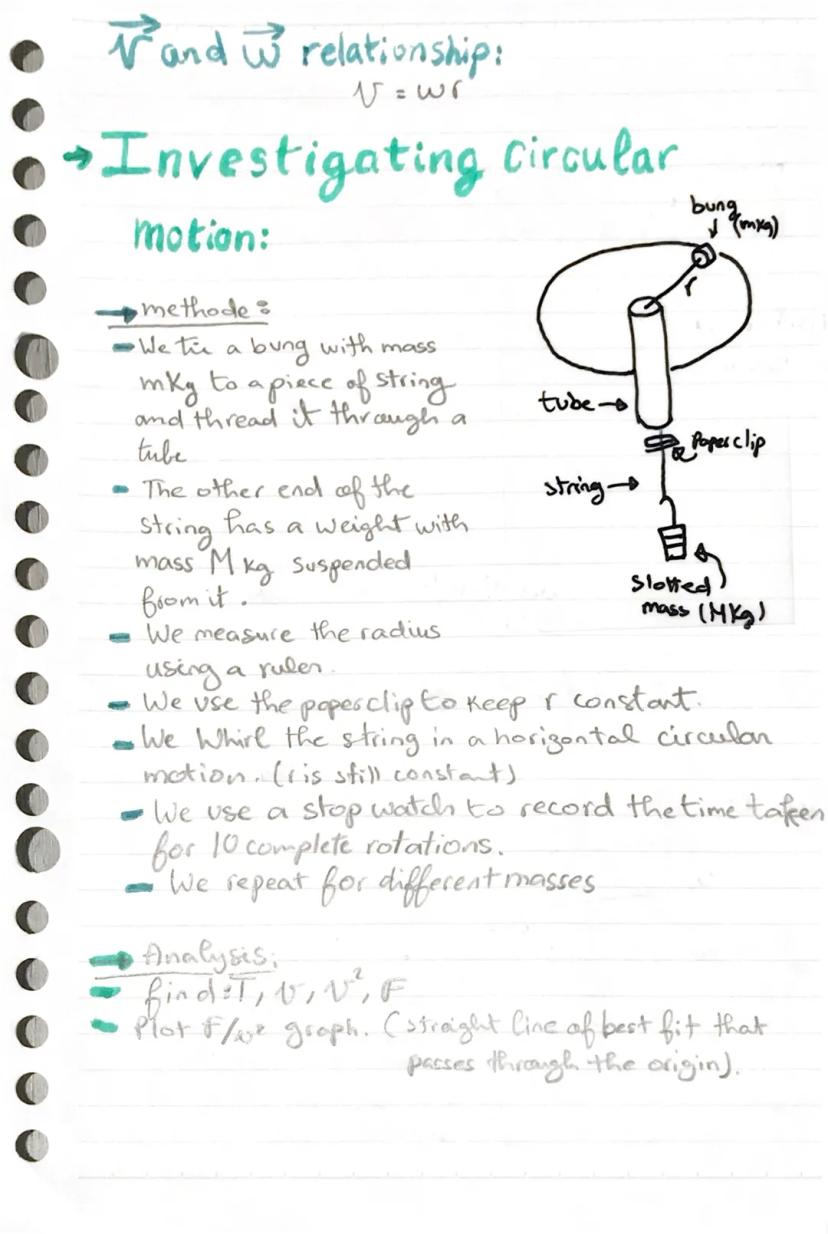 v⃗ and w⃗ relationship:
v = wr
→ Investigating circular
motion:
bung
(mKg)
r
tube →
Paperclip
string →
Slotted
mass (MKg)
→ methode:
- We tie a bung with mass
mKg to a piece of string
and thread it through a
tube
- The other end of the
string has a weight with
mass M kg suspended
from it.
- We measure the radius
using a ruler.
- We use the paperclip to keep r constant.
- We Whirl the string in a horizontal circular
motion. (r is still constant)
- We use a stop watch to record the time taken
for 10 complete rotations.
- We repeat for different masses
→ Analysis:
- find: T, v, v², F
- Plot F/v² graph. (straight line of best fit that
passes through the origin).